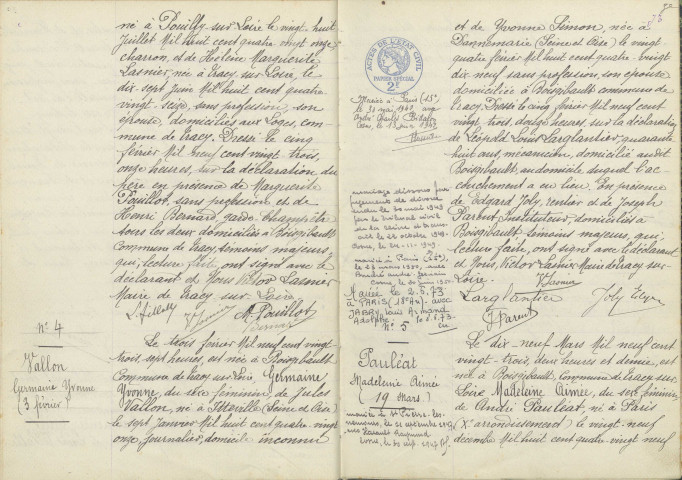 né à Pouilly sur Loire le vingt huit
Juillet Mil huit cent quatre vingt onze
charron, et de Hélène Marguerite
Lasnier, née à Tracy sur Loire, le
dix sept Juin Mil huit cent quatre
vingt seize, sans profession, son
épouse, domiciliés aux Loges, com-
mune de Tracy. Dressé le cinq
février Mil neuf cent vingt trois,
onze heures, sur la déclaration du
père en présence de Marguerite
Pouillot, sans profession, et de
Henri Bernard, garde-champêtre
tous les deux domiciliés à Boisgibault
Commune de Tracy, témoins majeurs,
qui, lecture faite, ont signé avec le
déclarant et Nous Victor Lasnier
Maire de Tracy sur Loire.
M. Pouillot
N° 4
Vallon
Germaine Yvonne
(3 février)
Le trois février Mil neuf cent vingt
trois, sept heures, est née à Boisgibault
Commune de Tracy-sur-Loire, Germaine
Yvonne, du sexe féminin, de Jules
Vallon, né à (Seine et Oise)
le sept Janvier Mil huit cent quatre-vingt
onze, journalier, domicile inconnu
et de Yvonne Simon, née à
Dannemarie (Seine et Oise) le vingt
quatre février Mil huit cent quatre-vingt
dix neuf sans profession, son épouse
domiciliée à Boisgibault commune de
Tracy. Dressé le cinq février Mil neuf cent
vingt trois, douze heures, sur la déclaration
de Léopold Louis Larglantier, quarante
huit ans, mécanicien, domicilié audit
Boisgibault, au domicile duquel l'ac-
couchement a eu lieu. En présence
de Edgard Joly, rentier et de Joseph
Parent, Instituteur, domiciliés à
Boisgibault témoins majeurs, qui,
lecture faite, ont signé avec le déclarant
et Nous, Victor Lasnier Maire de Tracy-sur-
Loire.
Lasnier
Larglantier
Joly
J. Parent
ACTES DE L'ÉTAT CIVIL
PAPIER SPÉCIAL
2F
Mariée à Paris (15e)
le 10 mai 1941, avec
André Charles
mariage dissous par
jugement de divorce
rendu le 20 mai 1949
par le tribunal civil
de la Seine
le 26 octobre 1949.
mariée à Paris
Mariée le 2.6.73
à PARIS (18e Ar) avec
JABRY, Louis Armand
Adolphe
N° 5
Pauléat
Madeleine Aimée
(19 Mars)
Le dix neuf Mars Mil neuf cent
vingt-trois, deux heures et demie, est
née à Boisgibault, Commune de Tracy sur
Loire Madeleine Aimée, du sexe féminin,
de André Pauléat, né à Paris
(X° arrondissement) le vingt-neuf
décembre Mil huit cent quatre-vingt neuf